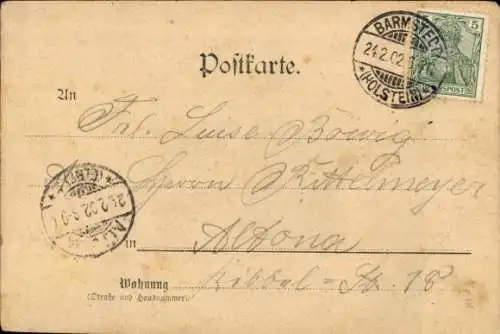 BARMSTEDT
24.2.02
*(HOLSTEIN)*
5
Postkarte.
An
Frl. Luise Böwig
Herrn Rittelmeyer
in Altona
24.2.02
Wohnung
(Straße und Hausnummer)
Str. 18